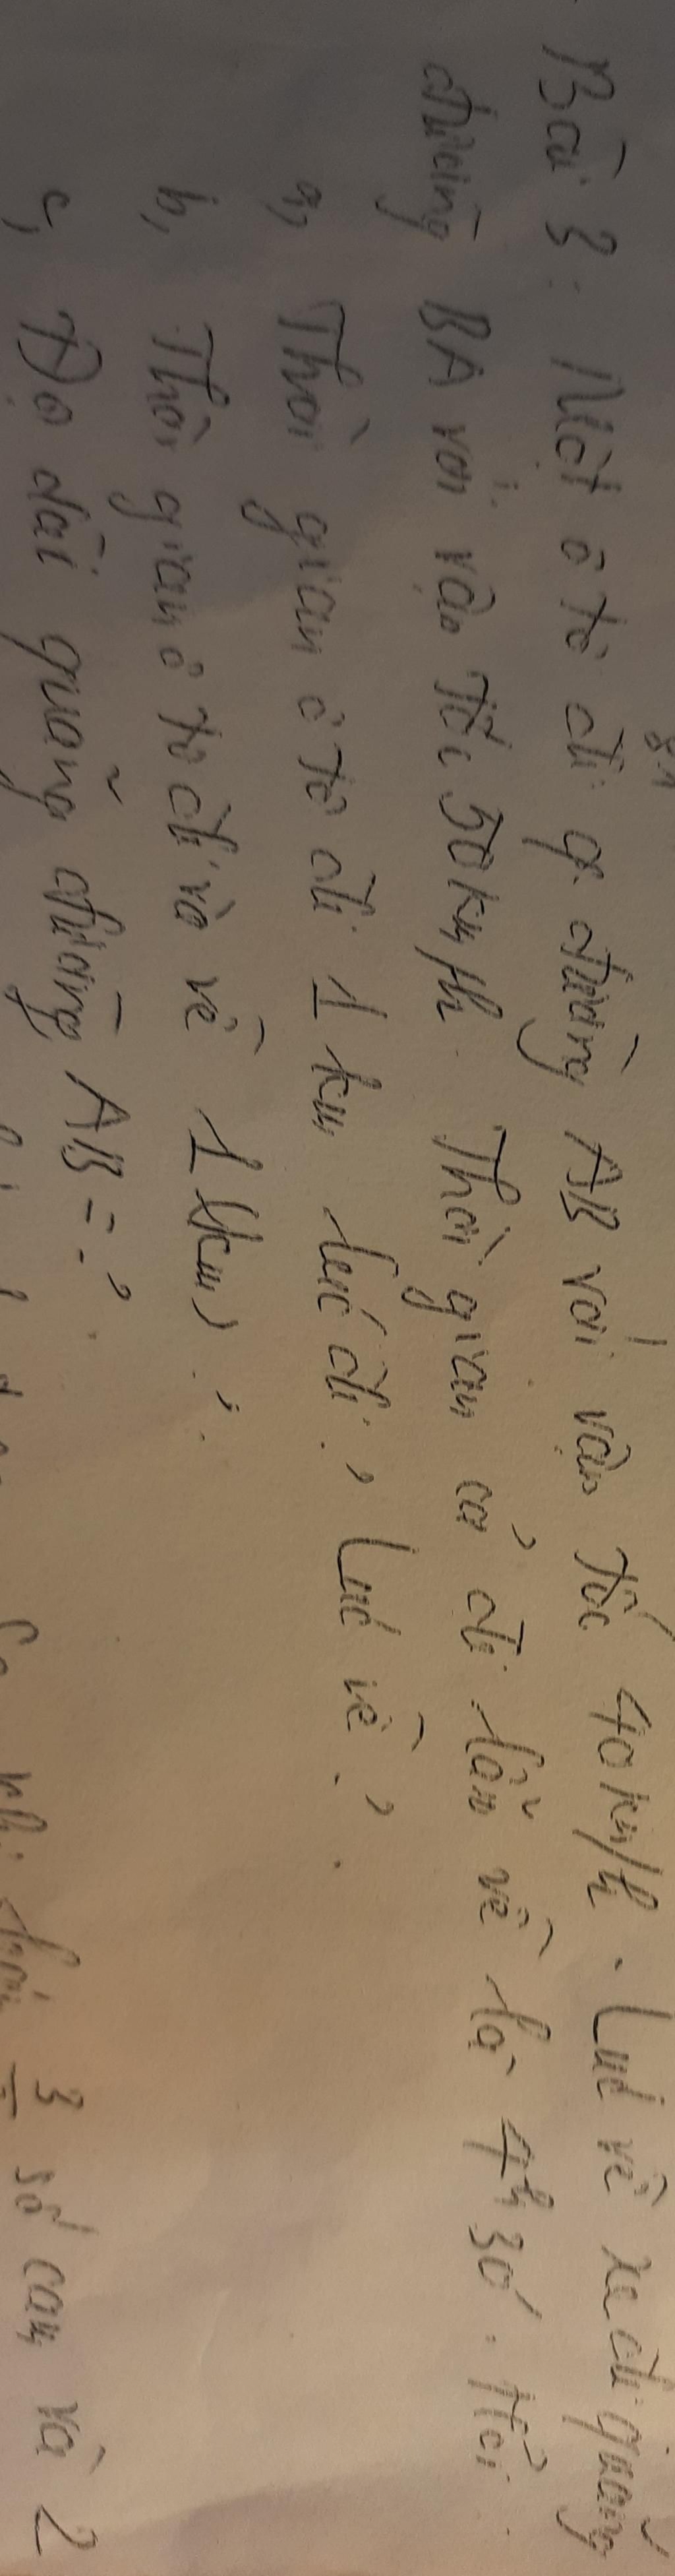 Bài 3: Một ô tô đi q. đường AB với vận tốc 40 km/h. Lúc về xe đi quãng
đường BA với vận tốc 50 km/h. Thời gian cả đi lẫn về là 4h30'. Hỏi
a, Thời gian ô tô đi 1 km lúc đi?, Lúc về?
b, Thời gian ô tô đi và về 1 (km)?
c, Độ dài quãng đường AB = ?
3 số cam và 2